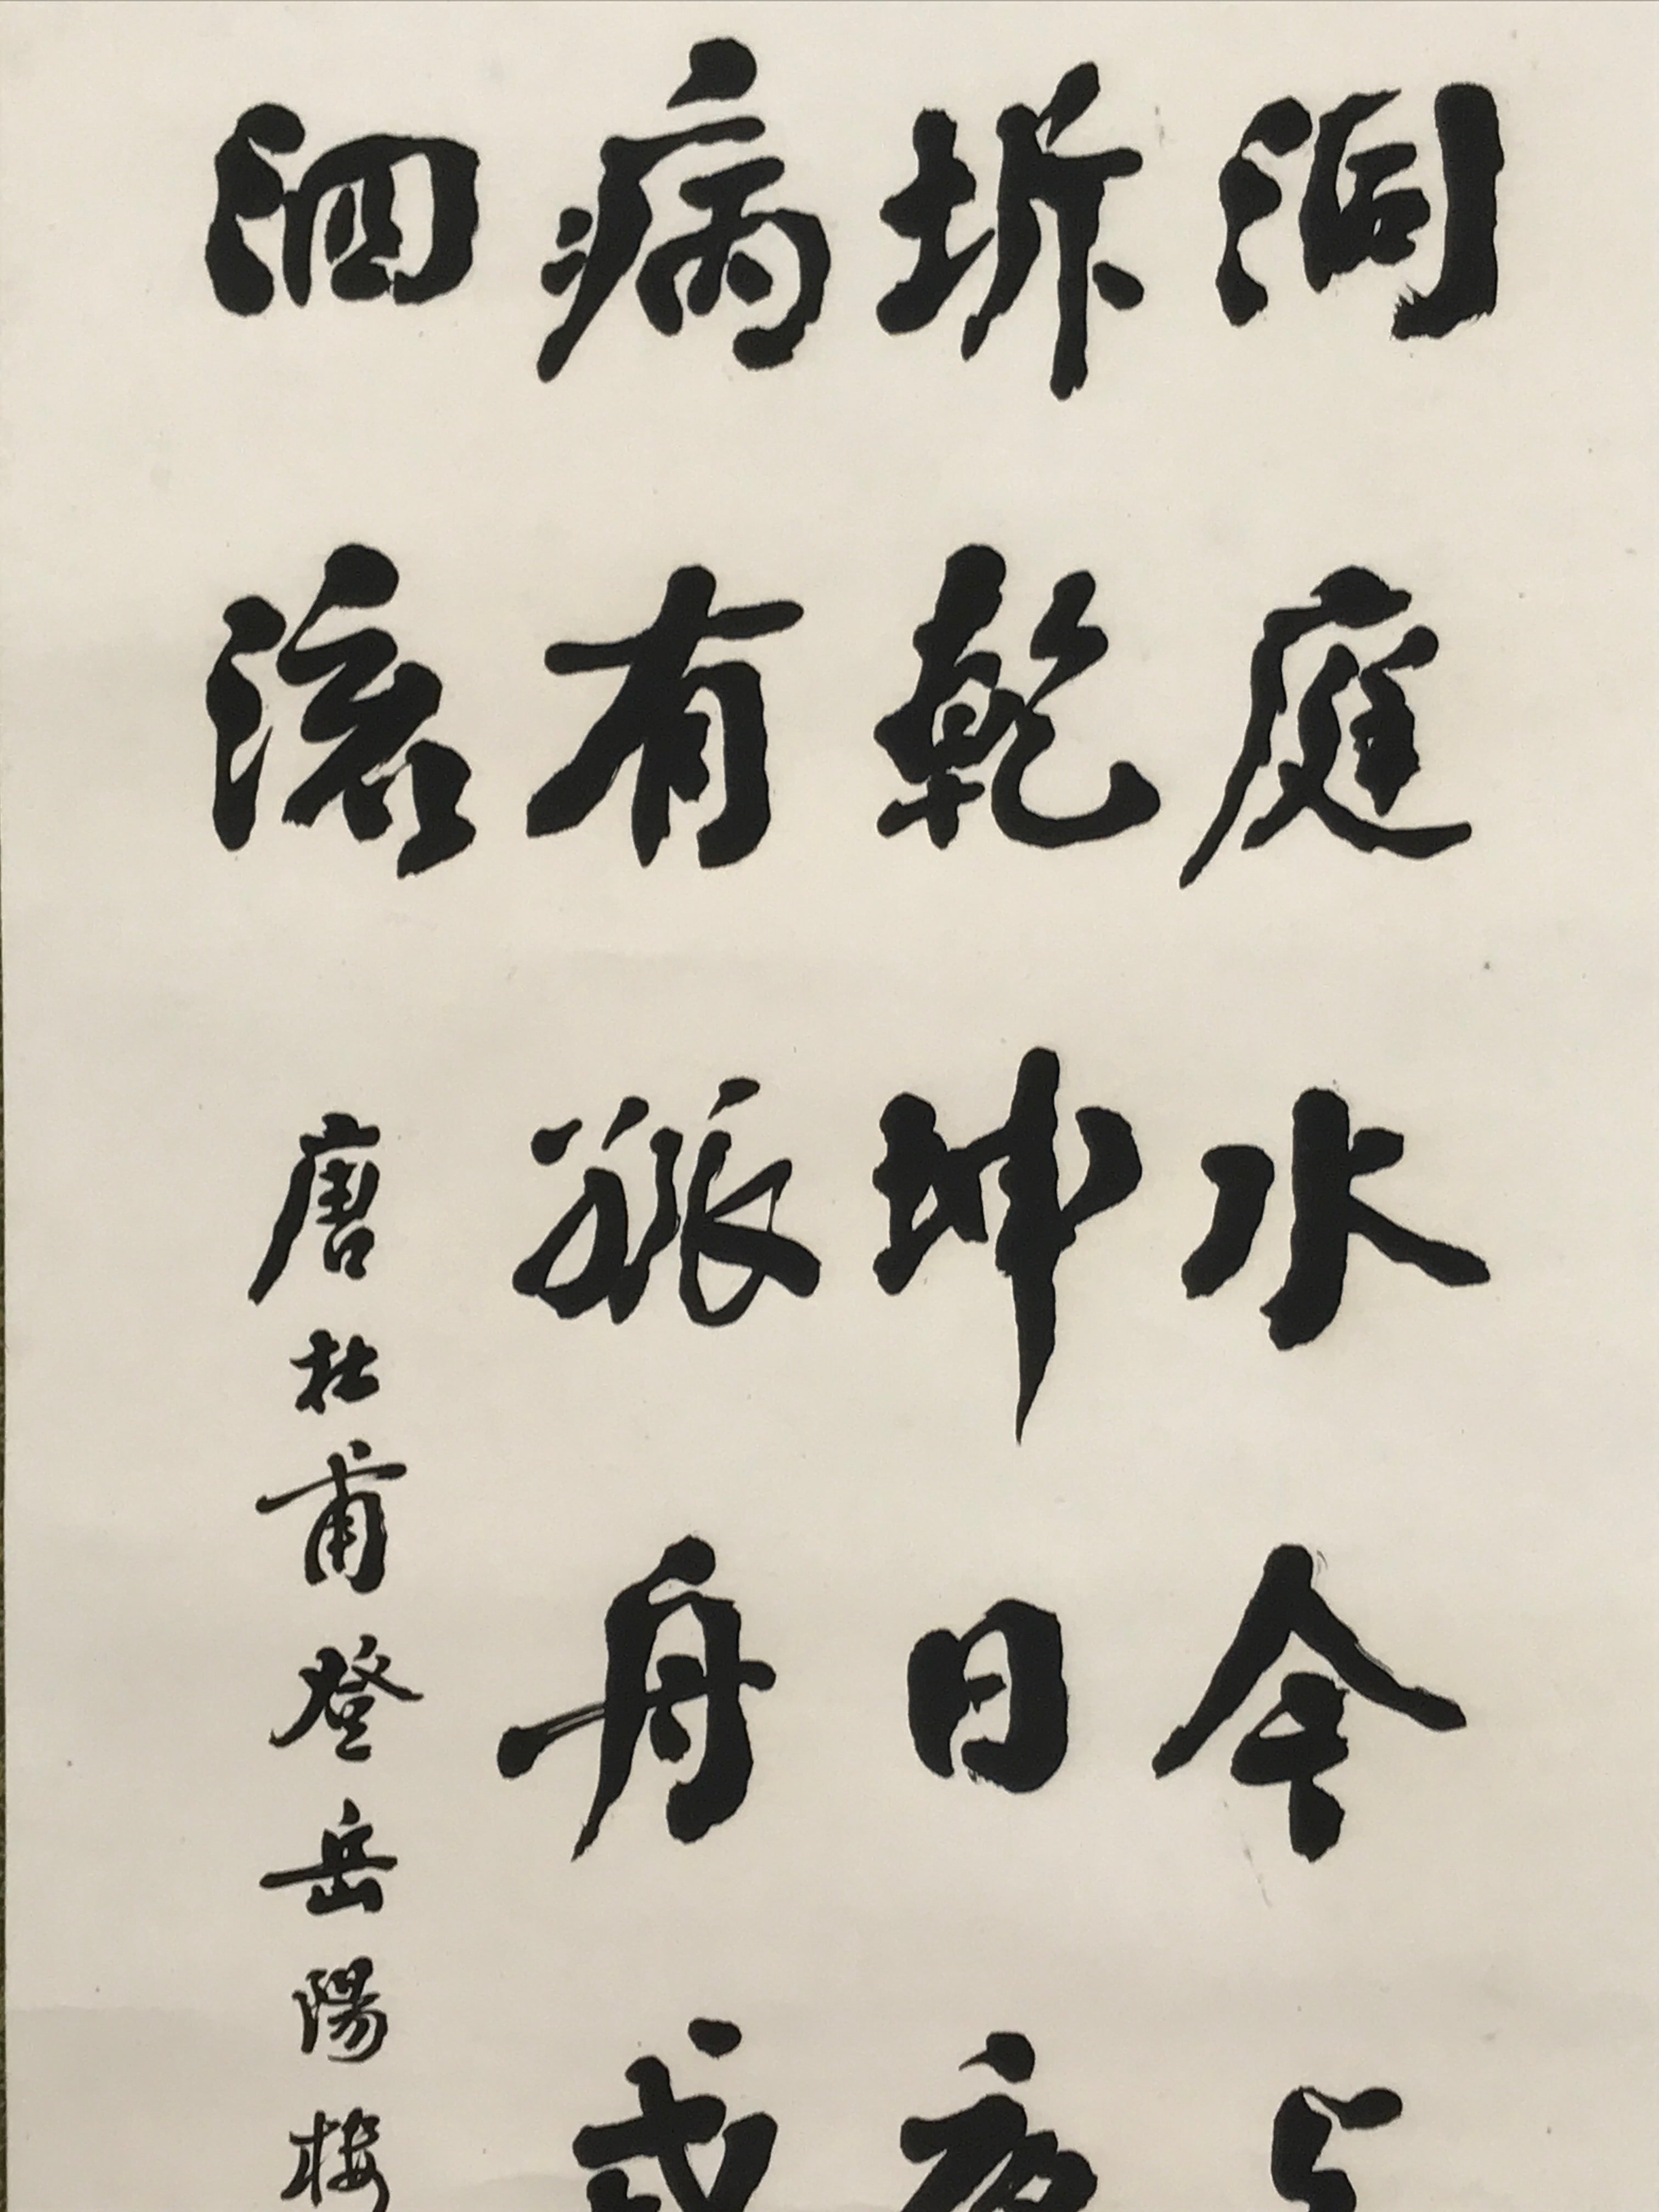 洞庭水今上
坼乾坤日夜
病有孤舟戎
泗流 唐杜甫登岳陽樓